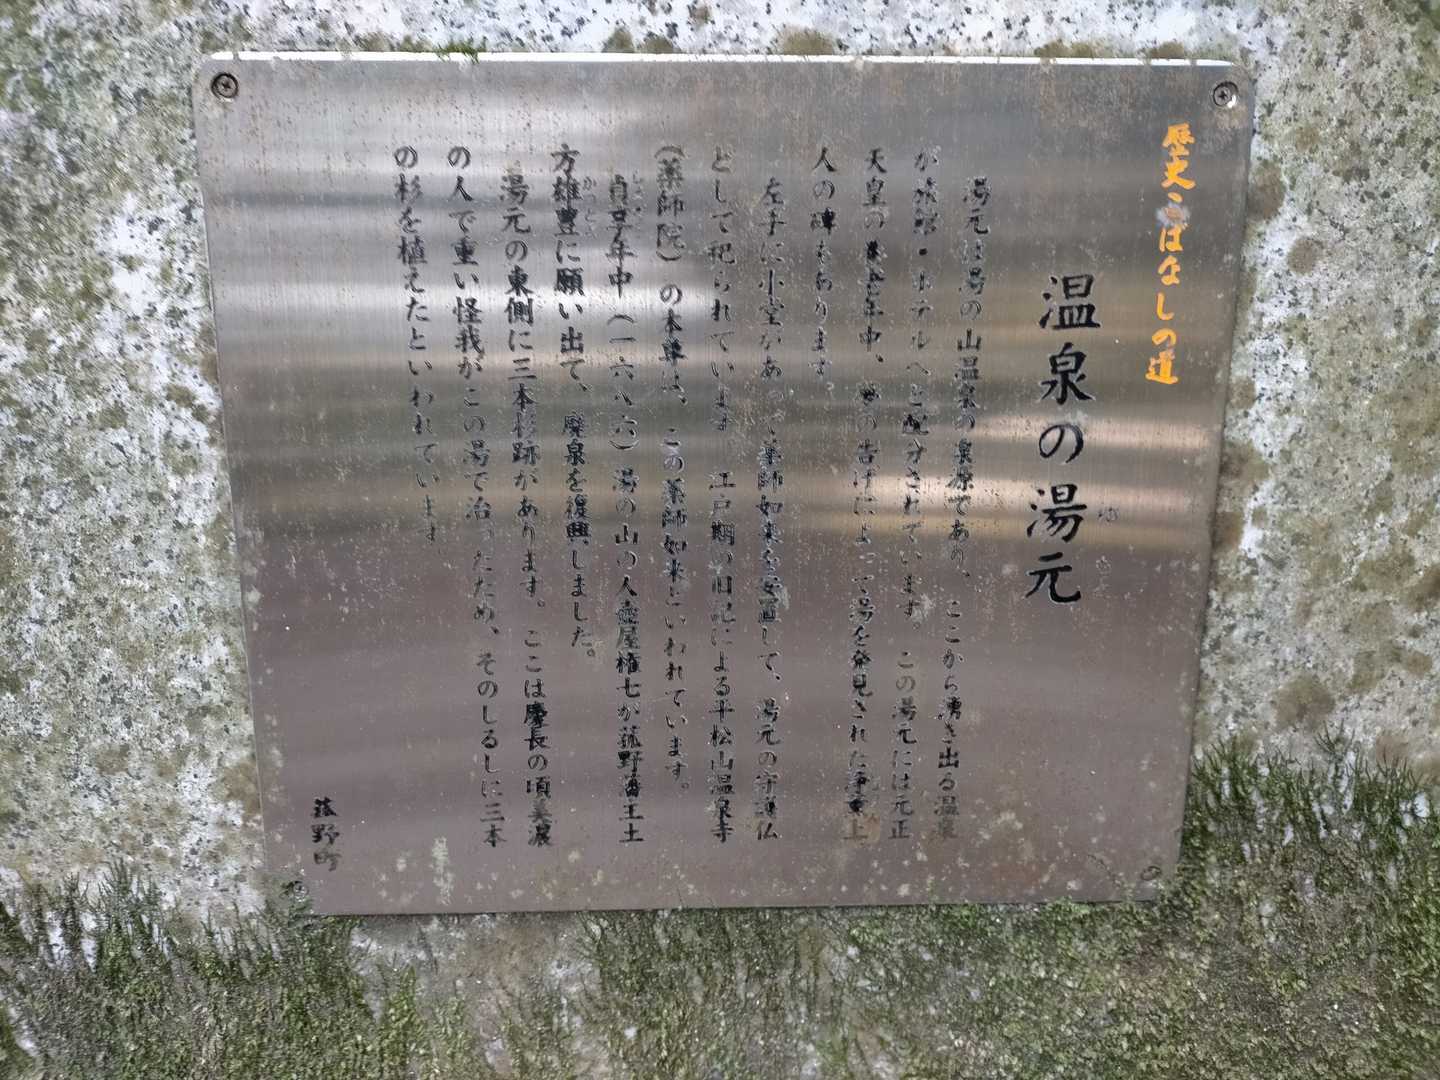 歴史こばなしの道
温泉の湯元
湯元は湯の山温泉の泉源であり、ここから湧き出る温泉
が旅館・ホテルへと配分されています。この湯元には元正
天皇の養老年中、夢の告げによって湯を発見された浄薫上
人の碑もあります。
左手に小堂があって薬師如来を安置して、湯元の守護仏
として祀られています。江戸期の旧記による平松山温泉寺
（薬師院）の本尊は、この薬師如来といわれています。
貞享年中（一六八六）湯の山の人壷屋権七が菰野藩主土
方雄豊に願い出て、廃泉を復興しました。
湯元の東側に三本杉跡があります。ここは慶長の頃美濃
の人で重い怪我がこの湯で治ったため、そのしるしに三本
の杉を植えたといわれています。
菰野町